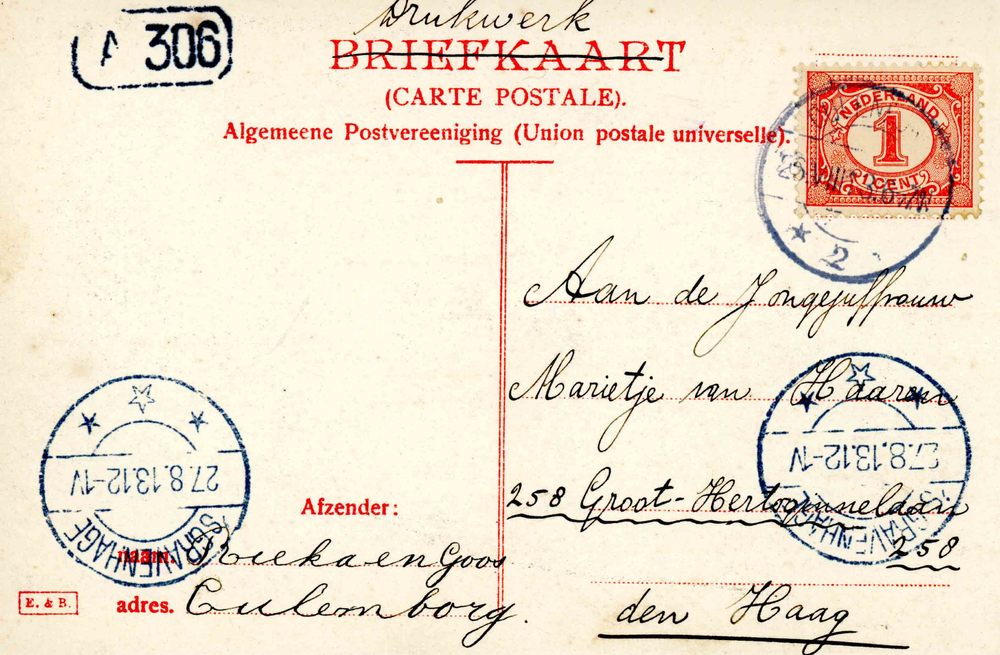 A 306
Drukwerk
BRIEFKAART
(CARTE POSTALE).
Algemeene Postvereeniging (Union postale universelle).
NEDERLAND
1
1 CENT
2
Aan de Jongejuffrouw
Marietje van Haaren
258 Groot-Hertoginnelaan
258
den Haag
27.8.13.12-1V
'S GRAVENHAGE
27.8.13.12-1V
'S GRAVENHAGE
Afzender:
naam. Rieka en Goos
adres. Culemborg.
E. & B.